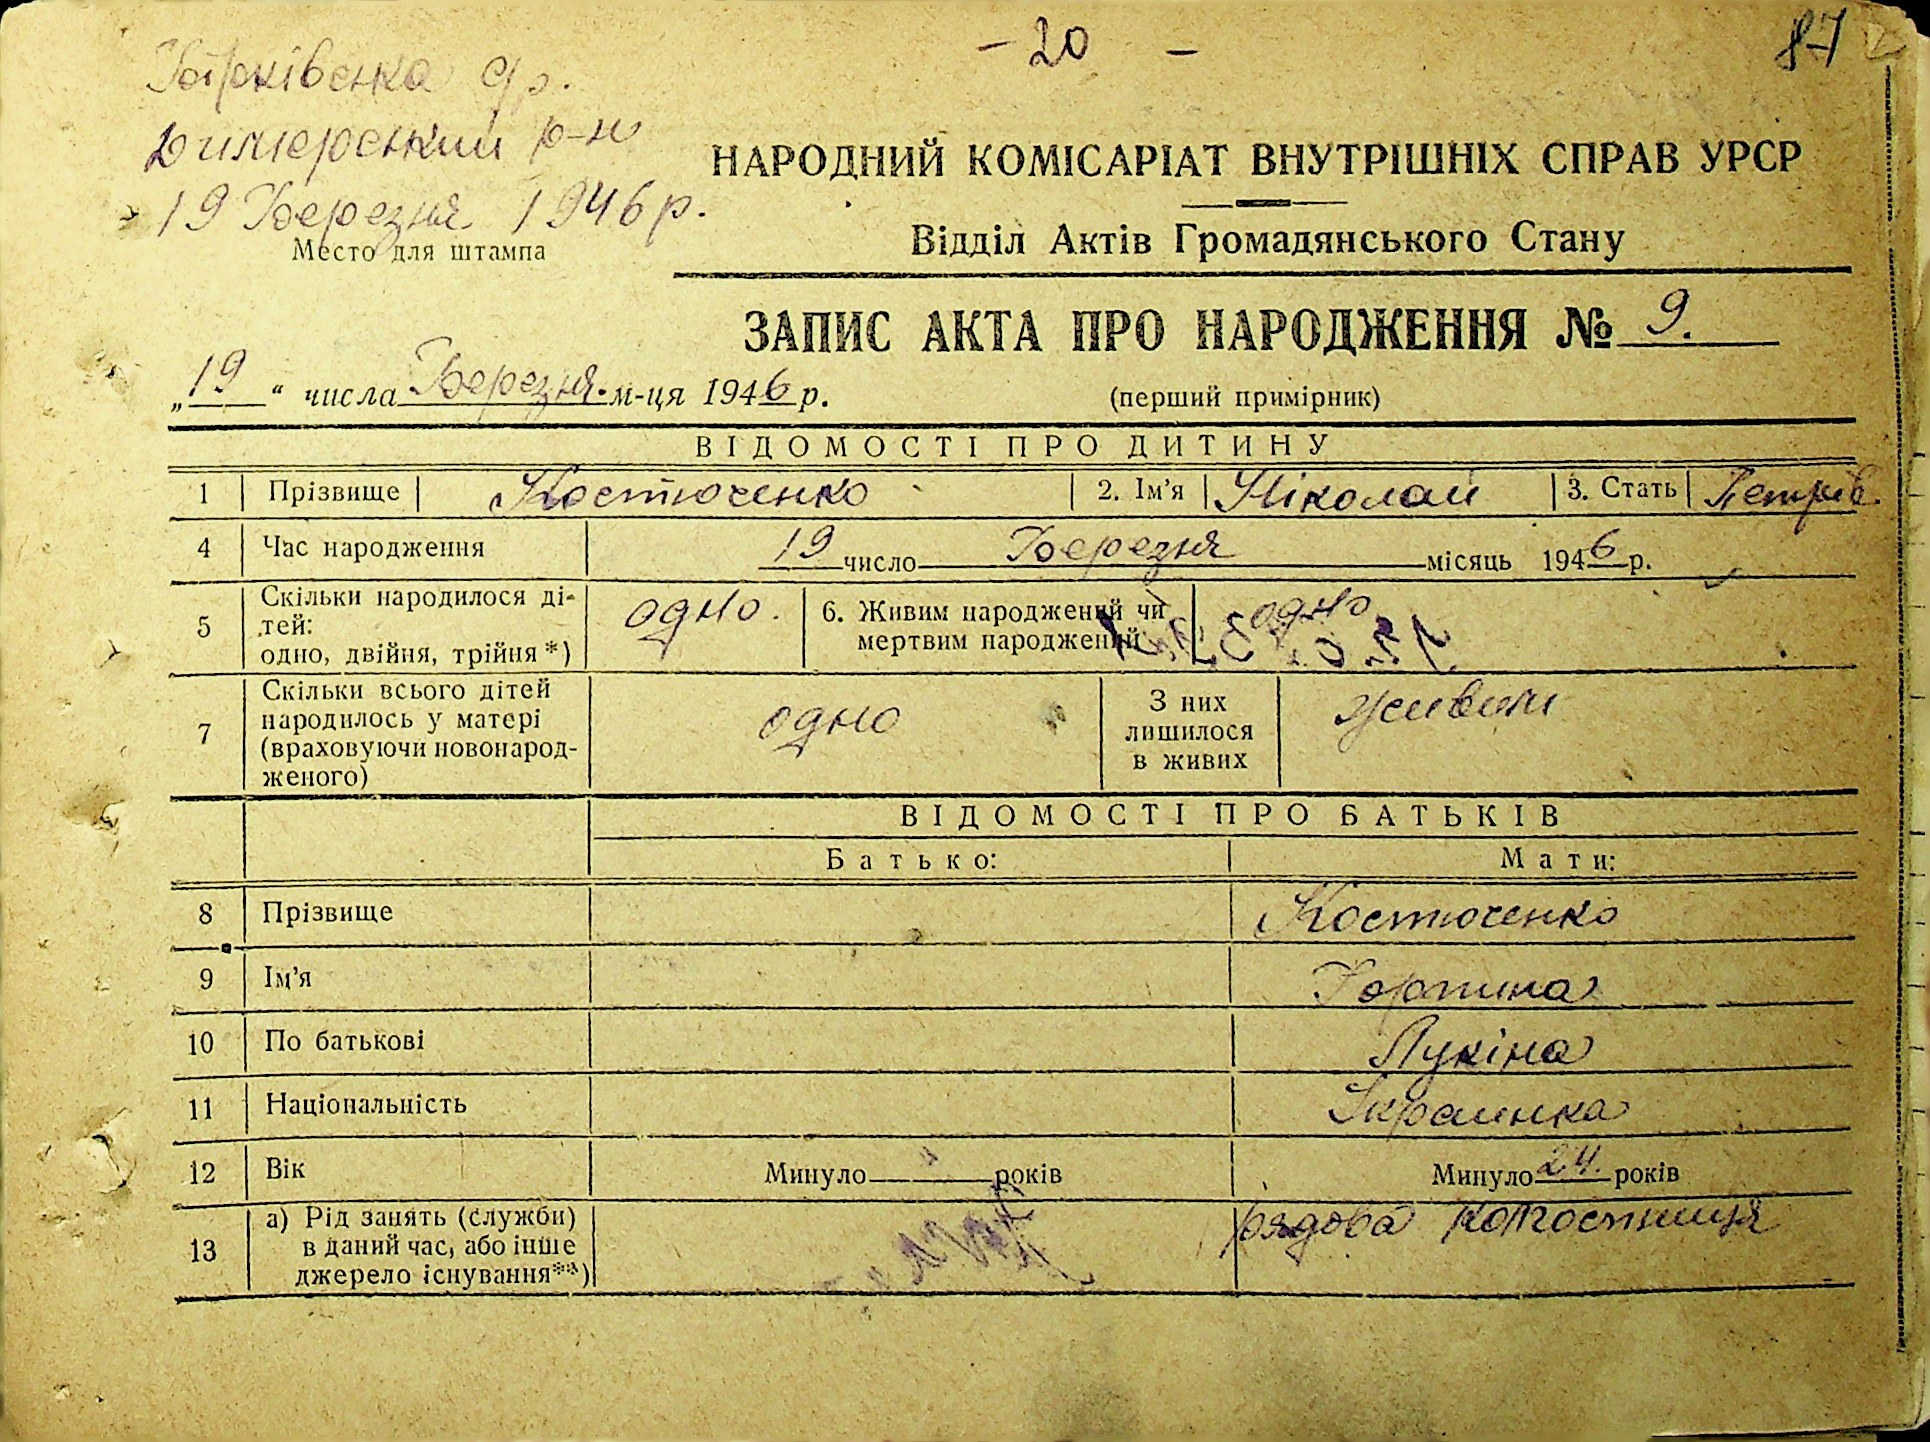 - 20 -
87
Димерський р-н
19 Березня 1946 р.
Место для штампа
НАРОДНИЙ КОМІСАРІАТ ВНУТРІШНІХ СПРАВ УРСР
Відділ Актів Громадянського Стану
ЗАПИС АКТА ПРО НАРОДЖЕННЯ № 9.
„19“ числа Березня м-ця 1946 р.
(перший примірник)
ВІДОМОСТІ ПРО ДИТИНУ
1 Прізвище Костюченко 2. Ім'я Ніколай 3. Стать Петрів.
4 Час народження 19 число Березня місяць 1946 р.
5 Скільки народилося ді-
тей:
одно, двійня, трійня*) одно. 6. Живим народжений чи
мертвим народжений одно
7 Скільки всього дітей
народилось у матері
(враховуючи новонарод-
женого) одно З них
лишилося
в живих живим
ВІДОМОСТІ ПРО БАТЬКІВ
Батько: Мати:
8 Прізвище Костюченко
9 Ім'я
10 По батькові Лукіна
11 Національність Украинка
12 Вік Минуло років Минуло 24. років
13 а) Рід занять (служби)
в даний час, або інше
джерело існування**) рядова